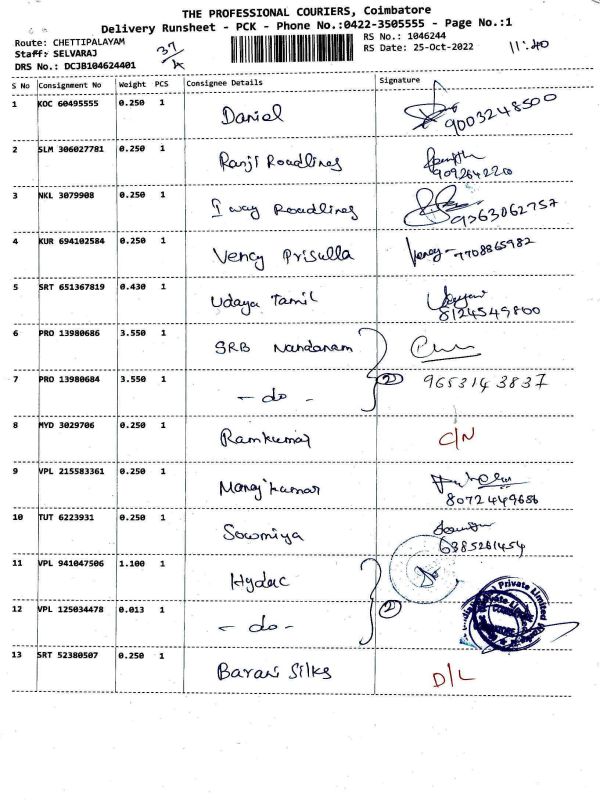 THE PROFESSIONAL COURIERS, Coimbatore
Delivery Runsheet - PCK - Phone No.:0422-3505555 - Page No.:1
Route: CHETTIPALAYAM RS No.: 1046244
Staff: SELVARAJ 37/4 RS Date: 25-Oct-2022 11:40
DRS No.: DCJB104624401
S No Consignment No Weight PCS Consignee Details Signature
1 KOC 60495555 0.250 1 Daniel 9003248500
2 SLM 306027781 0.250 1 Ranji Roadlines 9092642220
3 NKL 3079908 0.250 1 I way Roadlines 9363062757
4 KUR 694102584 0.250 1 Vency Prisulla Vency 7708865982
5 SRT 651367819 0.430 1 Udaya Tamil 8124549800
6 PRO 13980686 3.550 1 SRB Nandanam
7 PRO 13980684 3.550 1 - do - 2 9653143837
8 MYD 3029706 0.250 1 Ramkumar C/N
9 VPL 215583361 0.250 1 Manojkumar 8072449686
10 TUT 6223931 0.250 1 Sowmiya 6385261454
11 VPL 941047506 1.100 1 Hydac
12 VPL 125034478 0.013 1 - do - 2 Private Limited
13 SRT 52380507 0.250 1 Barani Silks D/L